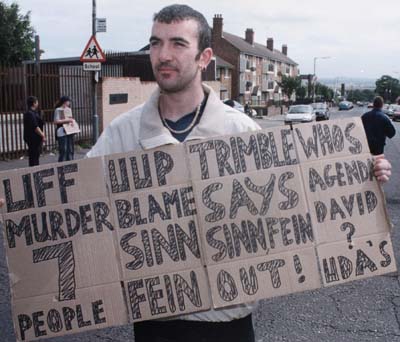 School
UFF
MURDER
7
PEOPLE
UUP
BLAME
SINN
FEIN
TRIMBLE
SAYS
SINN FEIN
OUT!
WHO'S
AGEND
DAVID
?
UDA'S